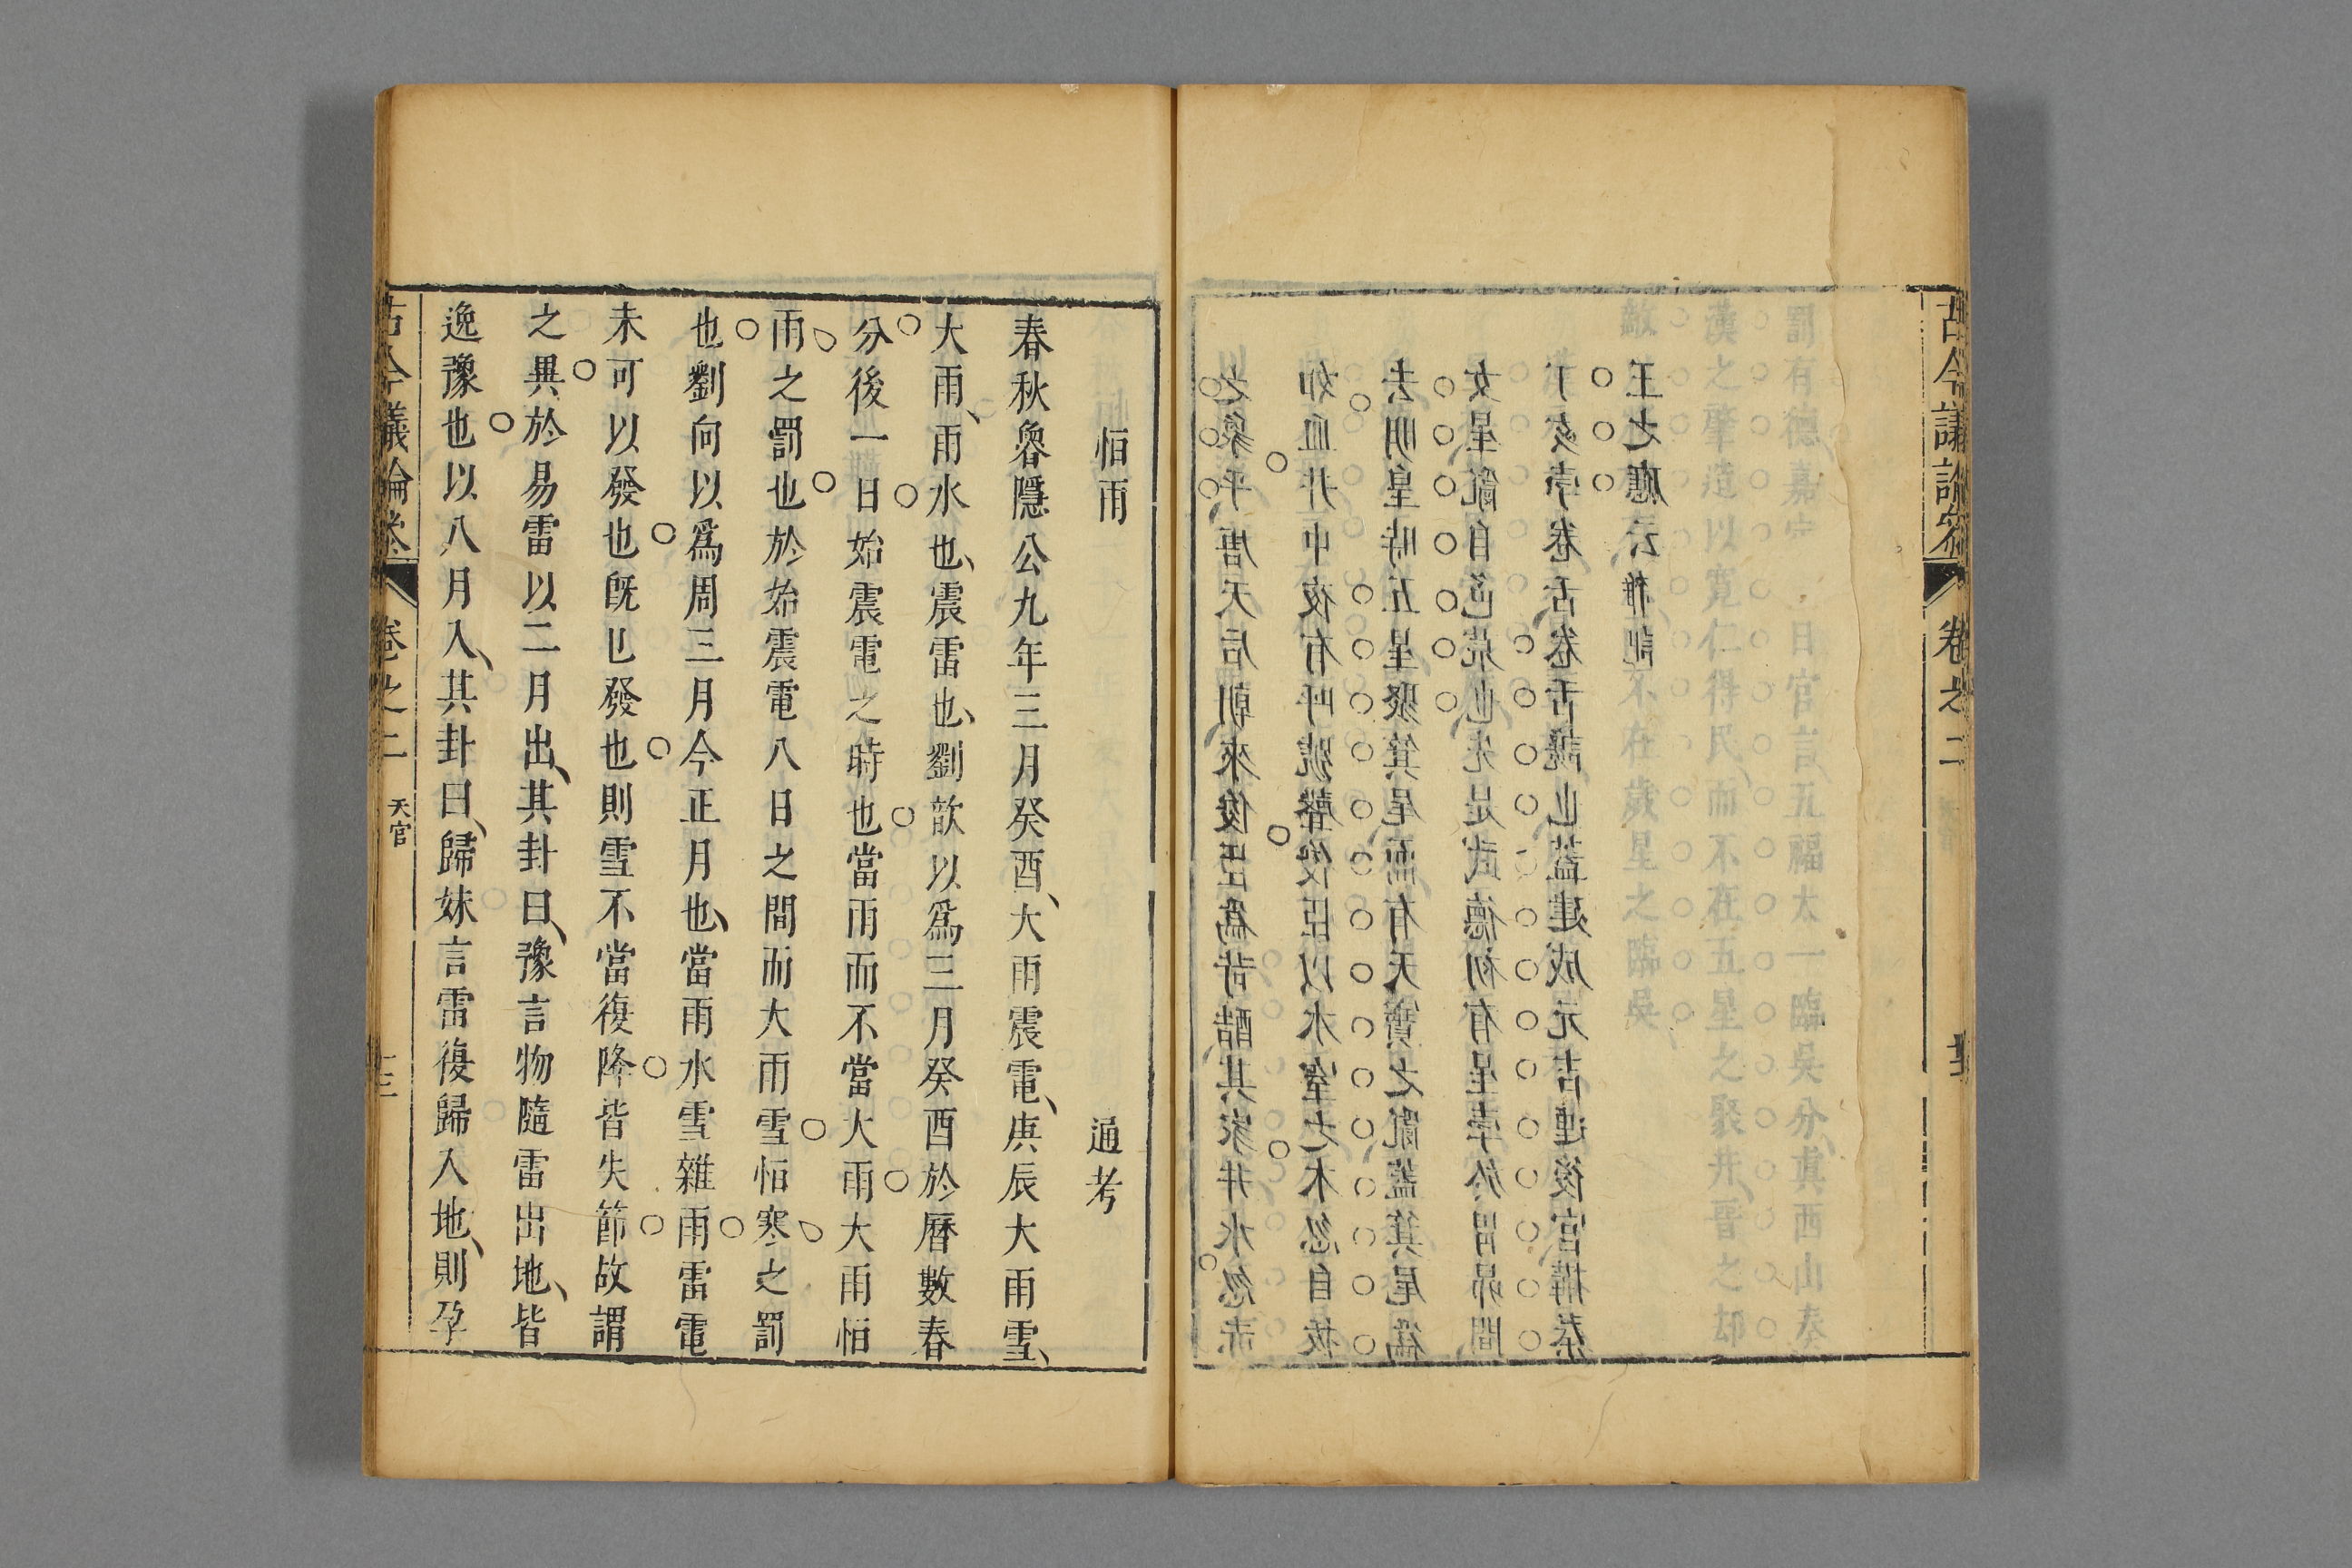 古今議論參 卷之二
罰有德嘉 日官言五福太一臨吳分真西山奏
漢之肇造以寬仁得民而不在五星之聚井晉之却
敵 不在歲星之臨吳
之象乎唐天后朝來俊臣爲苛酷其家井水忽赤
如血井中夜有吁號聲俊臣以木窒之木忽自拔
去明皇時五星聚箕尾而有天寶之亂蓋箕尾爲
女星亂自色荒也先是武德初有星孛於胃昴間
丁亥孛卷舌卷舌讒也蓋建成元吉連後宮搆秦
王之應云 雜記
恒雨 通考
春秋魯隱公九年三月癸酉、大雨震電、庚辰大雨雪、
大雨、雨水也、震雷也、劉歆以爲三月癸酉於曆數春
分後一日始震電之時也當雨而不當大雨大雨恒
雨之罰也於始震電八日之間而大雨雪恒寒之罰
也劉向以爲周三月今正月也、當雨水雪雜雨雷電
未可以發也旣已發也則雪不當復降皆失節故謂
之異於易雷以二月出、其卦曰、豫言物隨雷出地、皆
逸豫也以八月入、其卦曰、歸妹言雷復歸入地、則孕
古今議論參 卷之二 天官 十三